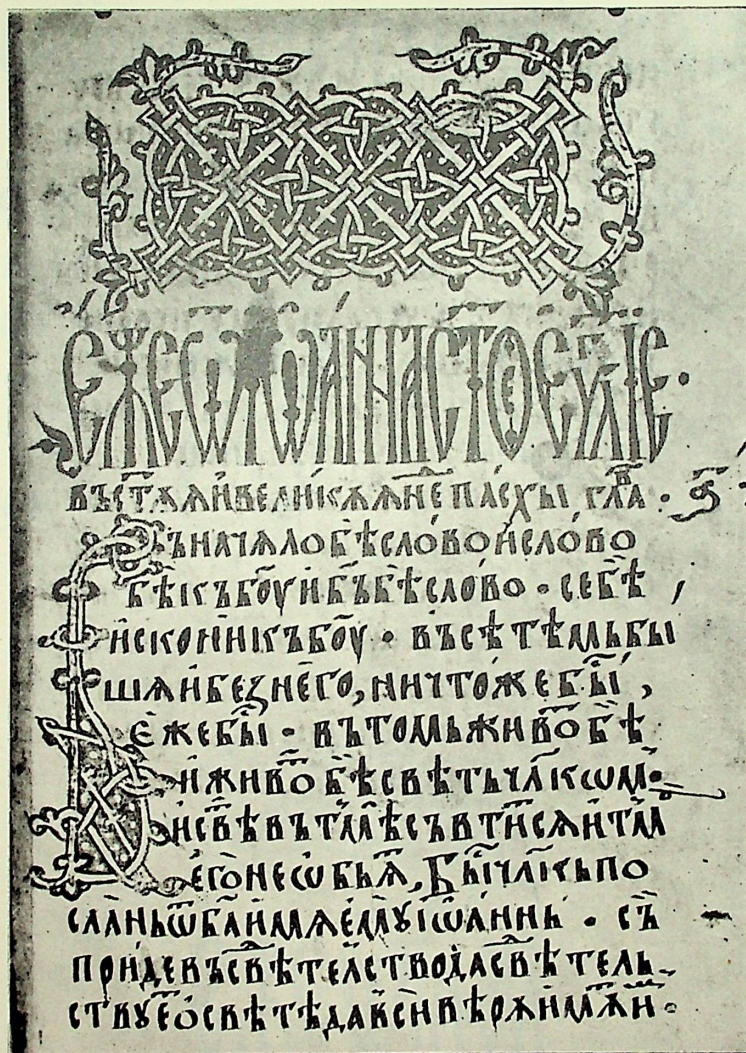 ЕЖЕ Ѿ ІѠАННА СТ҃ОЕ ЕѴ҃ЛІЕ ·
въ ст҃ѫѧ и великѫѧ нѐ пасхы глⷡ҇а · ꙁ҃ ·
Въ начѧло бѣ слово и слово
бѣ къ бо҃у и б҃ъ бѣ слово · се бѣ
искони къ бо҃у · въсѣ тѣмь бы
шѧ и без него, ничтоже бы҇ ,
еже бы҇ · въ томь живѡ҇ бѣ
и живѡ҇ бѣ свѣть чл҃кѡмⷨ·
и свⷮѣ въ тмѣ съвтⷩисѧ и тма
его не ѡбьѧⷮ, Бы҇ чл҃кь по
слань ѿ б҃а имѧ емꙋ іѡаннь · съ
прїиде въ свⷣѣтелство да свⷣѣтель
ствуеⷮ о свѣтѣ да вси вѣрѫ имⷮѫ и҆мь ·